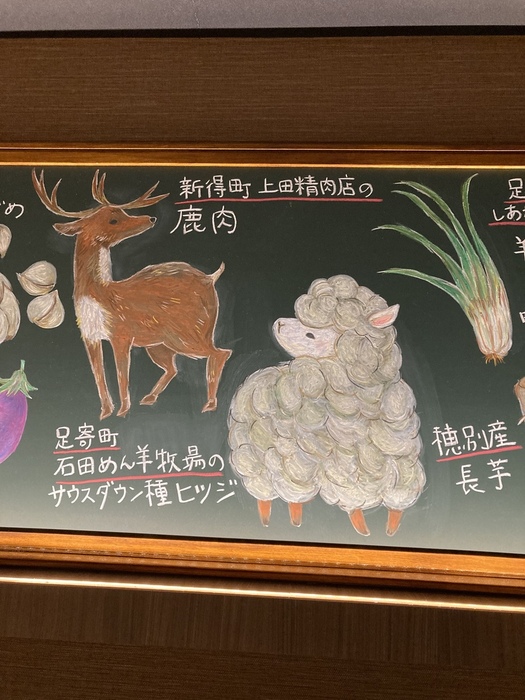 新得町 上田精肉店の
鹿肉
足寄町
石田めん羊牧場の
サウスダウン種ヒツジ
穂別産
長芋
足
しあ